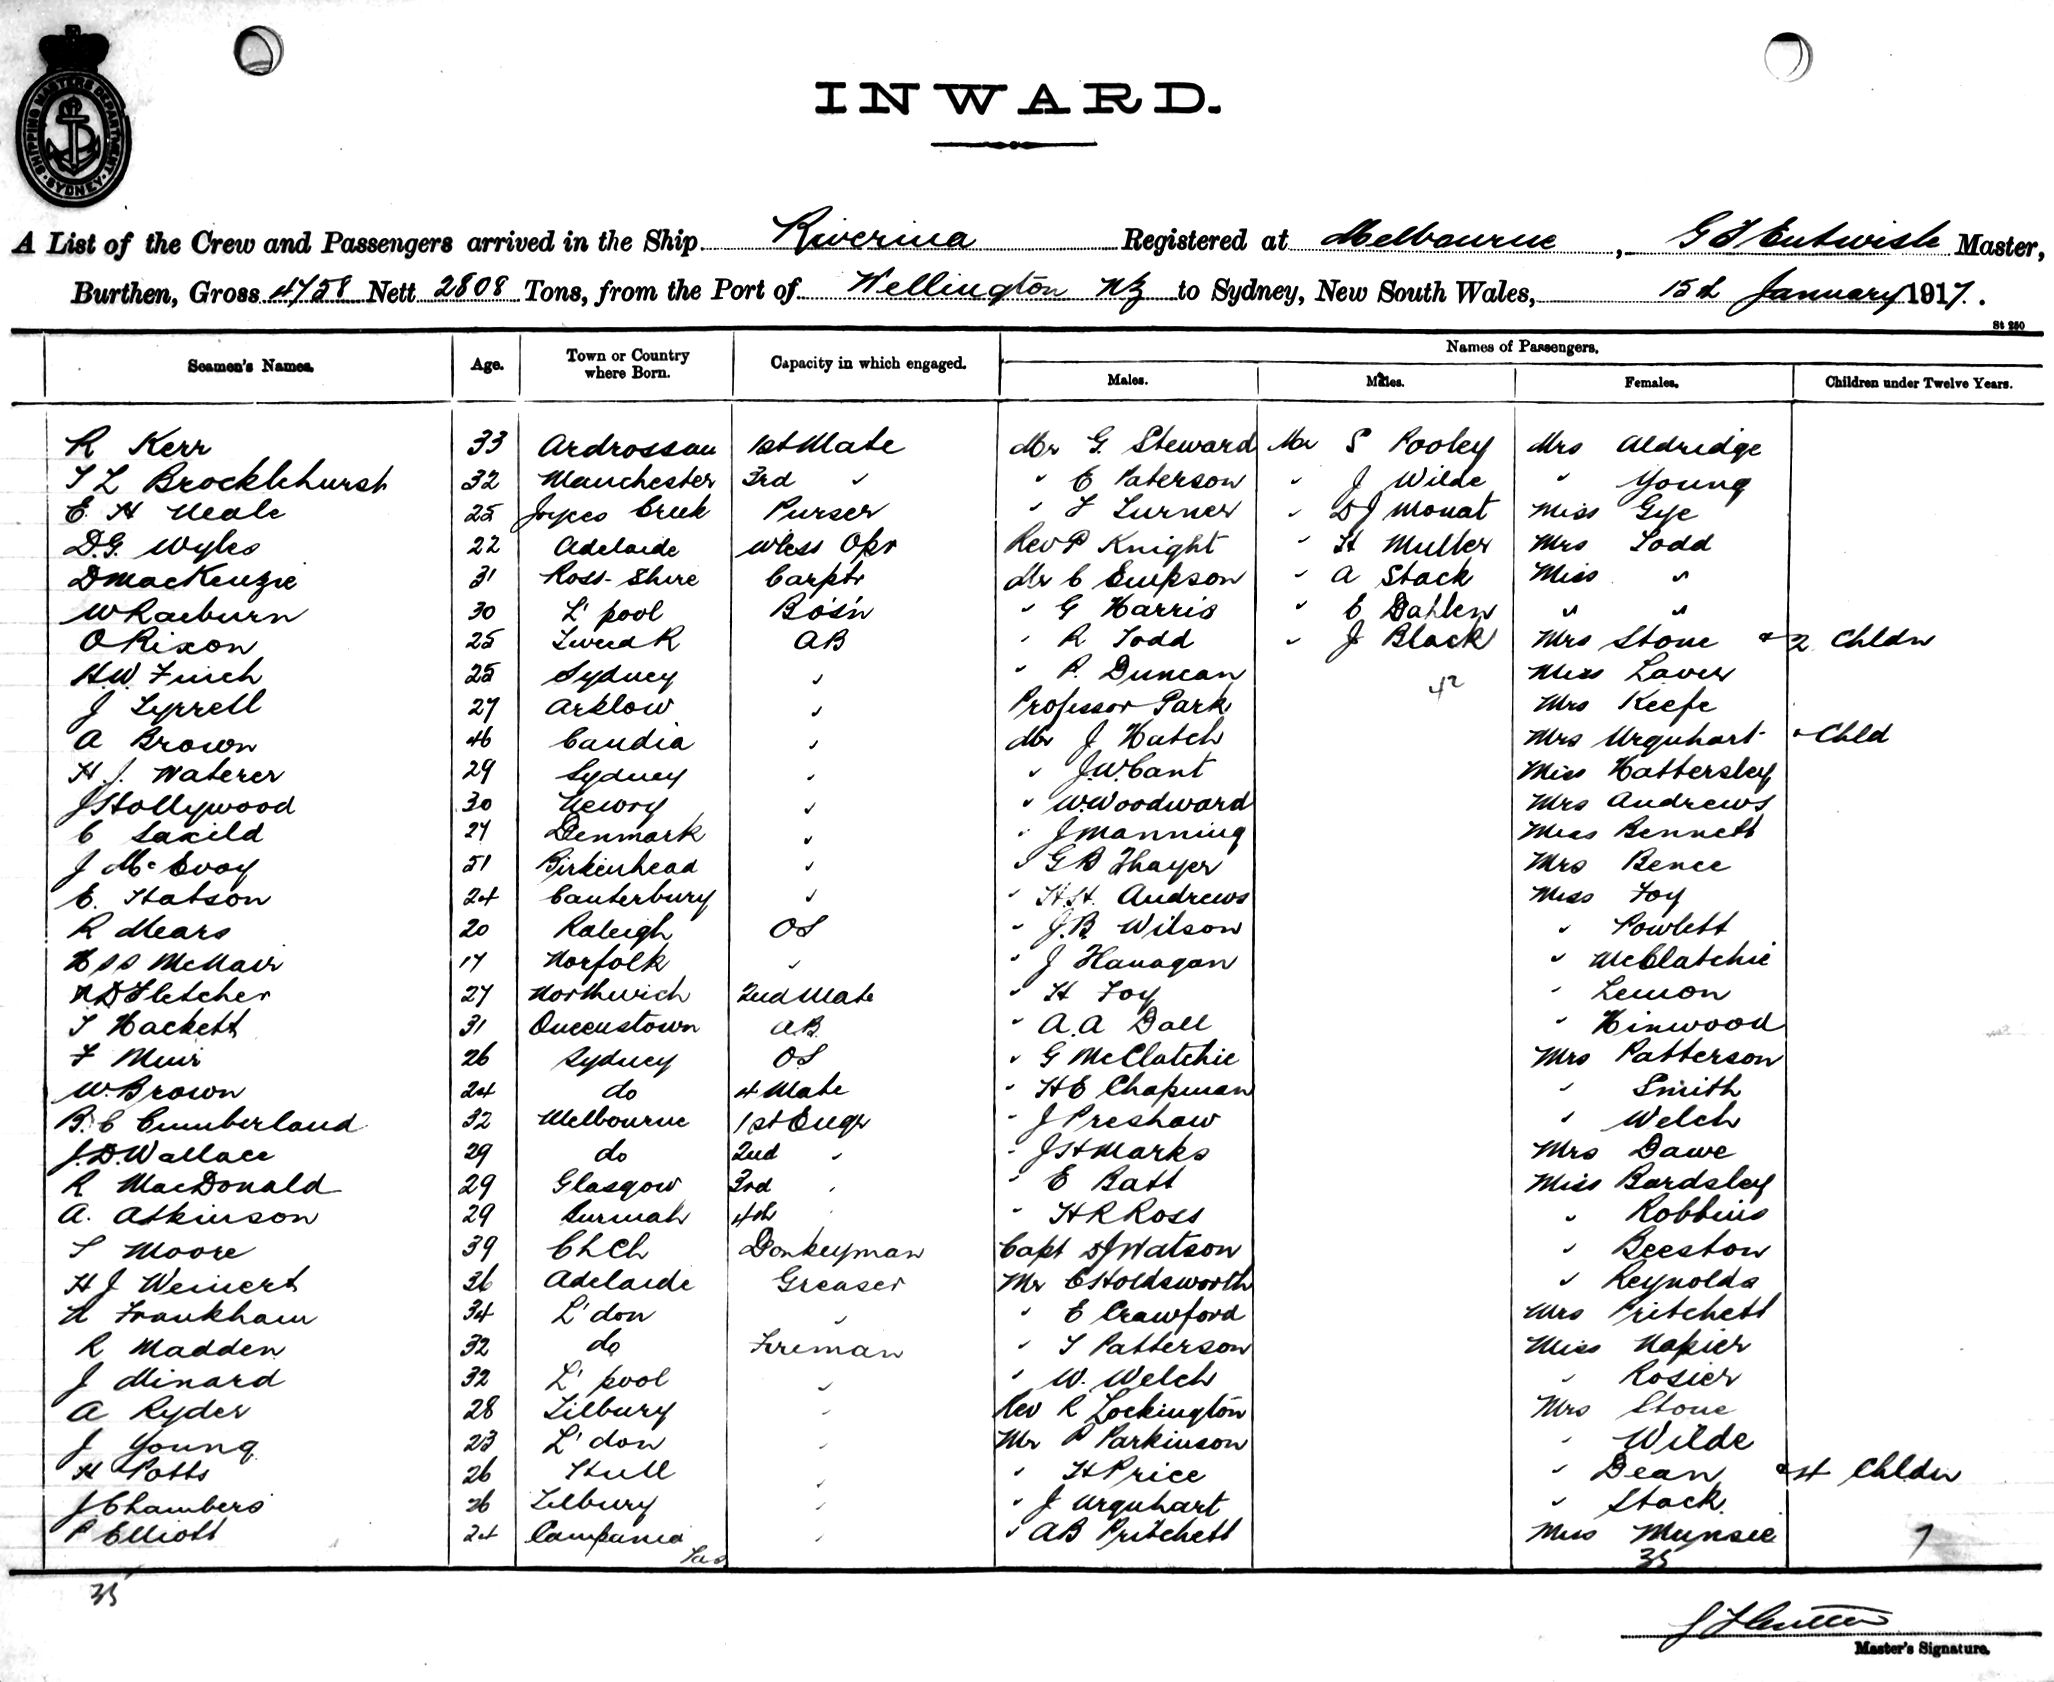 SHIPPING MASTERS DEPARTMENT · SYDNEY ·
INWARD.
A List of the Crew and Passengers arrived in the Ship Riverina Registered at Melbourne, G F Entwisle Master,
Burthen, Gross 4758 Nett 2808 Tons, from the Port of Wellington NZ to Sydney, New South Wales, 15th January 1917.
St 250
Seamen's Names. Age. Town or Country where Born. Capacity in which engaged. Names of Passengers.
Males. Males. Females. Children under Twelve Years.
R Kerr 33 Ardrossan 1st Mate Mr G. Steward Mr S Pooley Mrs Aldridge
T L Brocklehurst 32 Manchester 3rd " " E Paterson " J Wilde " Young
E H Neale 25 Joyces Creek Purser " F Turner " D J Mouat Miss Gye
D.G. Wyles 22 Adelaide Wless Opr Rev P Knight " H Muller Mrs Todd
D MacKenzie 31 Ross-Shire Carptr Mr C Empson " A Stack Miss "
W Raeburn 30 L'pool Bos'n " G Harris " C Dahlen " "
O Rixon 25 Tweed R AB " R Todd " J Black Mrs Stone & 2 Chldn
H.W. Finch 25 Sydney " " P. Duncan Miss Laver
42
J Tyrrell 27 Arklow " Professor Park Mrs Keefe
A Brown 46 Candia " Mr J Hatch Mrs Urquhart & Chld
H.J. Waterer 29 Sydney " " J.W. Cant Miss Hattersley
J Hollywood 30 Newry " " W. Woodward Mrs Andrews
C Saxild 27 Denmark " " J Manning Miss Bennett
J McEvoy 51 Birkenhead " " G B Thayer Mrs Bence
E. Hatson 24 Canterbury " " H.H. Andrews Miss Foy
R Mears 20 Raleigh OS " J.B. Wilson " Powlett
H S S McNair 17 Norfolk " " J Flanagan " McClatchie
N D Fletcher 27 Northwich 2nd Mate " H Foy " Lemon
T Hackett 31 Queenstown AB " A.A Dall " Hinwood
F Muir 26 Sydney OS " G McClatchie Mrs Patterson
W. Brown 24 do 4 Mate " H E Chapman " Smith
B. C Cumberland 32 Melbourne 1st Engr " J Preshaw " Welch
J.D. Wallace 29 do 2nd " " J H Marks Mrs Dawe
R MacDonald 29 Glasgow 3rd " " E Batt Miss Bardsley
A. Atkinson 29 Burmah 4th " " H R Ross " Robbins
T Moore 39 ChCh Donkeyman Capt D J Watson " Beeston
H J Weinert 36 Adelaide Greaser Mr C Holdsworth " Reynolds
N Frankham 34 L'don " " E Crawford Mrs Pritchett
R Madden 32 do Fireman " T Patterson Miss Napier
J Minard 32 L'pool " " W. Welch " Rosier
A Ryder 28 Tilbury " Rev R Lockington Mrs Stone
J Young 23 L'don " Mr P Parkinson " Wilde
H Potts 26 Hull " " H Price " Dean & 4 Chldn
J Chambers 26 Tilbury " " J Urquhart " Stack
P Elliott 24 Campania Tas " " A B Pritchett Miss Munsie 7
35
35
Master's Signature.